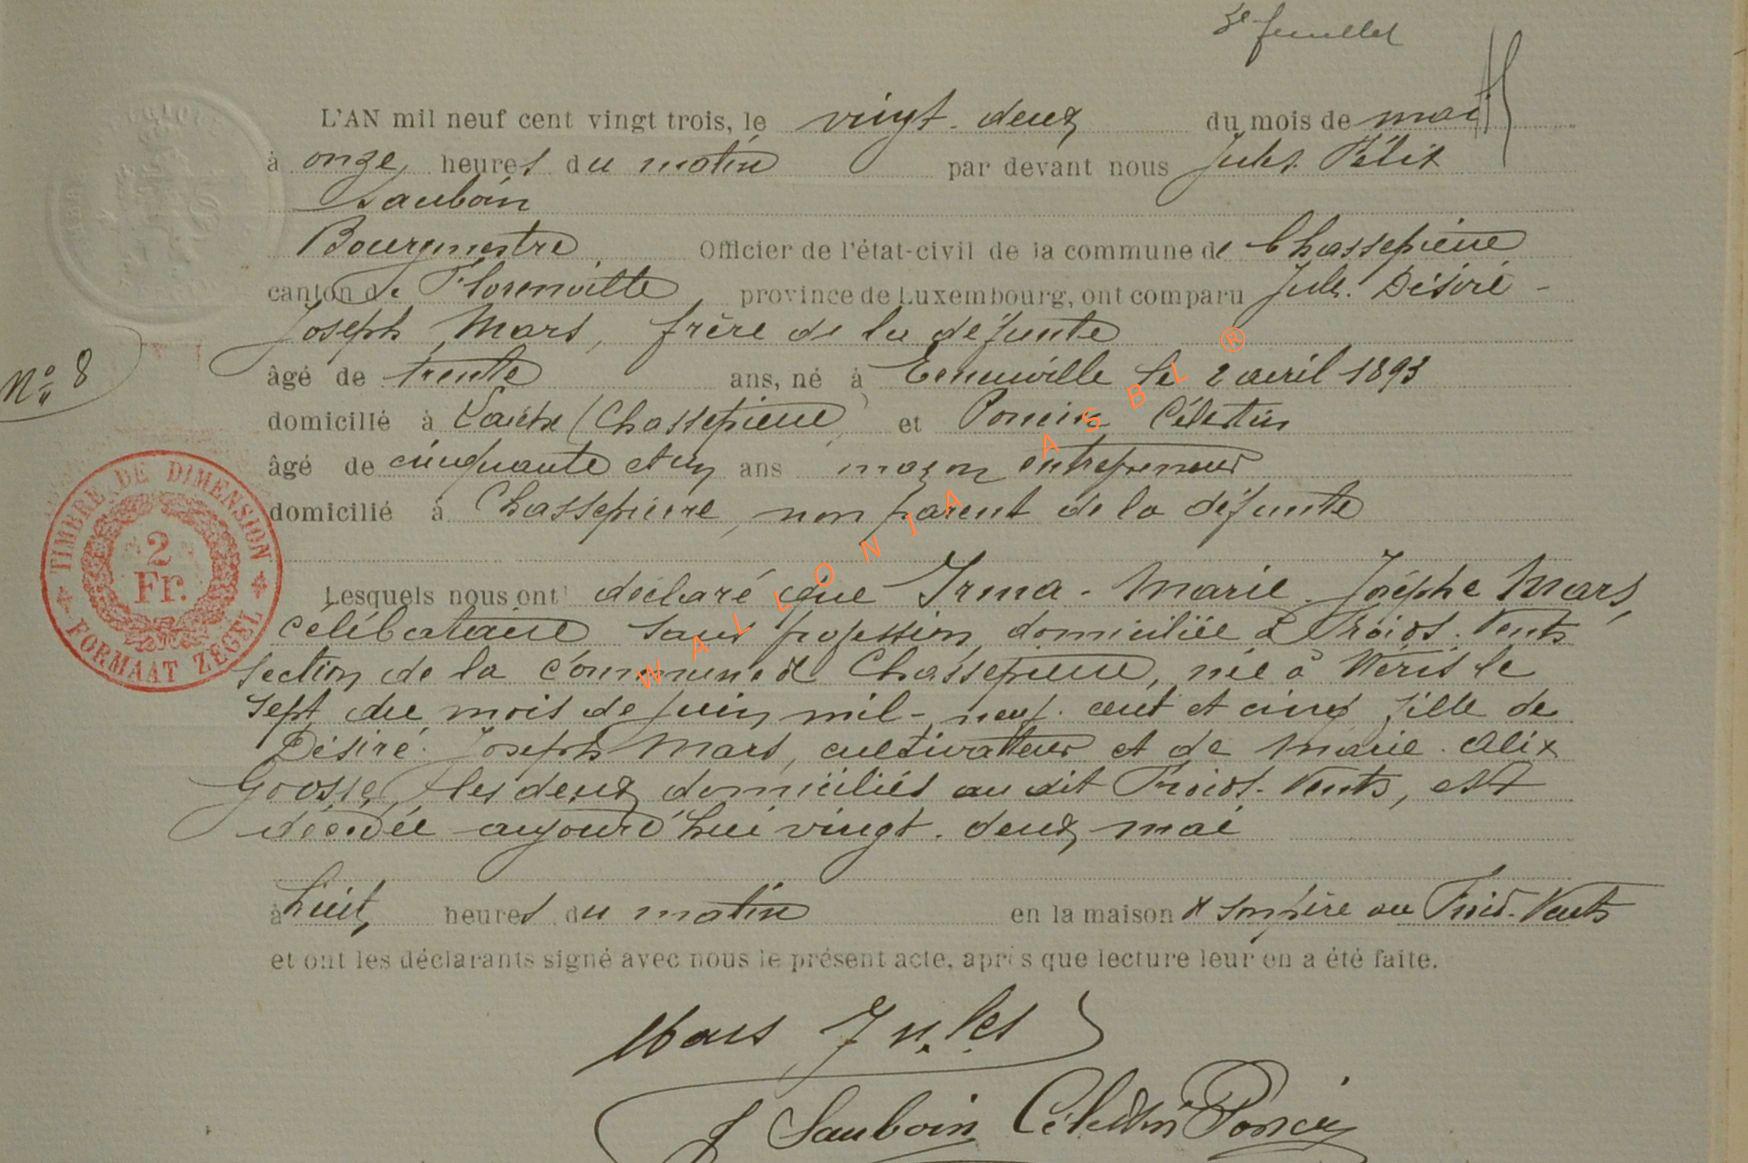 3e feuillet
L'AN mil neuf cent vingt trois, le vingt-deux du mois de mai
à onze heures du matin par devant nous Jules Félix
Sauboin
Bourgmestre, Officier de l'état-civil de la commune de Chassepierre
canton de Florenville, province de Luxembourg, ont comparu Jules Désiré-
Joseph Mars, frère de la défunte
N° 8
âgé de trente ans, né à le 2 avril 1893
domicilié à Laiche (Chassepierre) et Poncin Célestin
âgé de cinquante et un ans maçon entrepreneur
domicilié à Chassepierre, non parent de la défunte
TIMBRE DE DIMENSION
2
Fr.
FORMAAT ZEGEL
Lesquels nous ont déclaré que Irma-Marie-Josèphe Mars,
célibataire sans profession, domiciliée à Froids-Vents
section de la commune de Chassepierre, née à le
sept du mois de juin mil-neuf-cent et cinq fille de
Désiré-Joseph Mars, cultivateur et de Marie-Alix
Goosse, les deux domiciliés au dit Froids-Vents, est
décédée aujourd'hui vingt-deux mai
à huit heures du matin en la maison de son père au Froid-Vents
et ont les déclarants signé avec nous le présent acte, après que lecture leur en a été faite.
Mars Jules
J Sauboin Célestin Poncin
WALLONIA ASBL ®